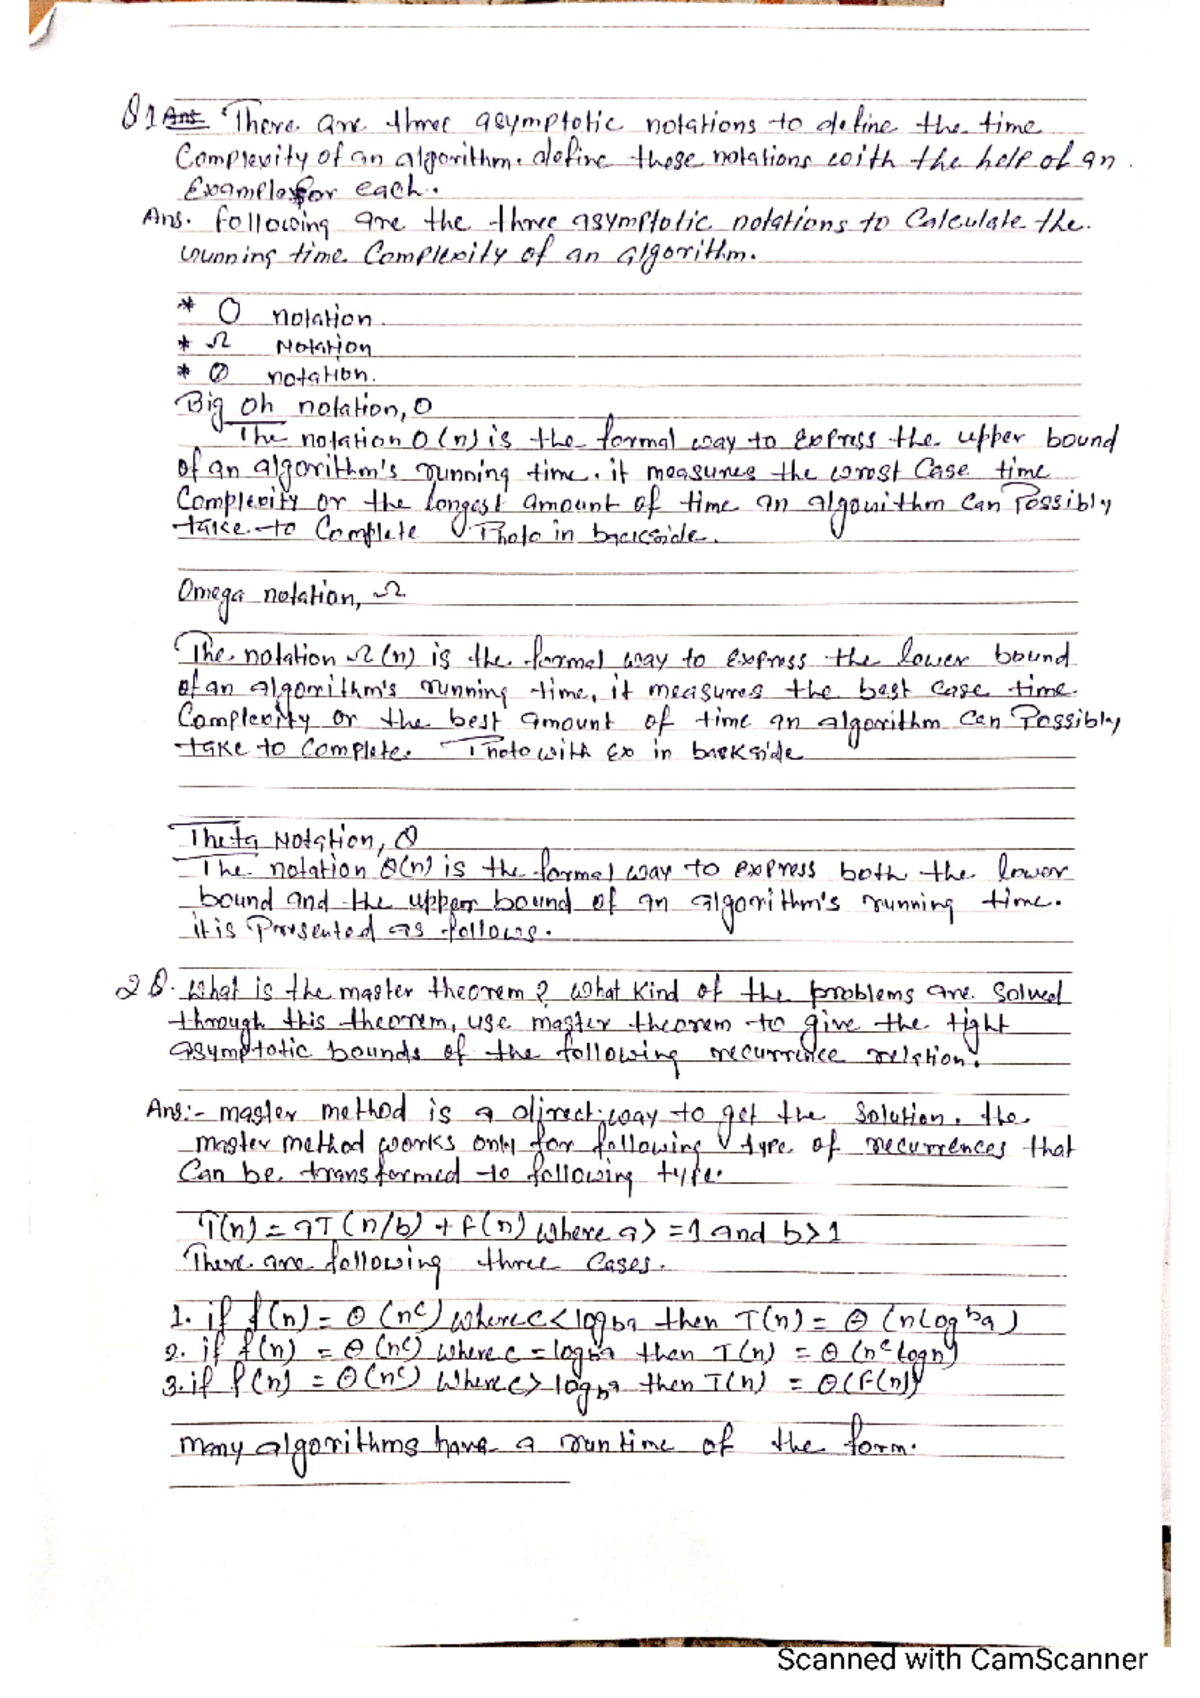 Q1 Ans There are three asymptotic notations to define the time
Complexity of an algorithm. define these notations with the help of an
Example for each.
Ans. following are the three asymptotic notations to Calculate the
running time Complexity of an algorithm.
* O notation
* Ω Notation
* θ notation.
Big Oh notation, O
The notation O(n) is the formal way to Express the upper bound
of an algorithm's running time. it measures the worst Case time
Complexity or the longest amount of time an algorithm Can Possibly
take to Complete Photo in backside.
Omega notation, Ω
The notation Ω(n) is the formal way to Express the lower bound
of an algorithm's running time, it measures the best case time
Complexity or the best amount of time an algorithm Can Possibly
take to Complete. Photo with Ex in backside
Theta Notation, θ
The notation θ(n) is the formal way to express both the lower
bound and the upper bound of an algorithm's running time.
it is Presented as follows.
2Q. What is the master theorem? What Kind of the problems are Solved
through this theorem, use master theorem to give the tight
asymptotic bounds of the following recurrence relation:
Ans:- master method is a direct way to get the Solution. the
master method works only for following type of recurrences that
Can be transformed to following type.
T(n) = aT(n/b) + f(n) where a>=1 and b>1
There are following three Cases.
1. if f(n) = θ(n^c) where c<log_b a then T(n) = θ(n Log^b a)
2. if f(n) = θ(n^c) where c = log_b a then T(n) = θ(n^c log n)
3. if f(n) = θ(n^c) Where c> log_b a then T(n) = θ(F(n))
many algorithms have a runtime of the form.
Scanned with CamScanner